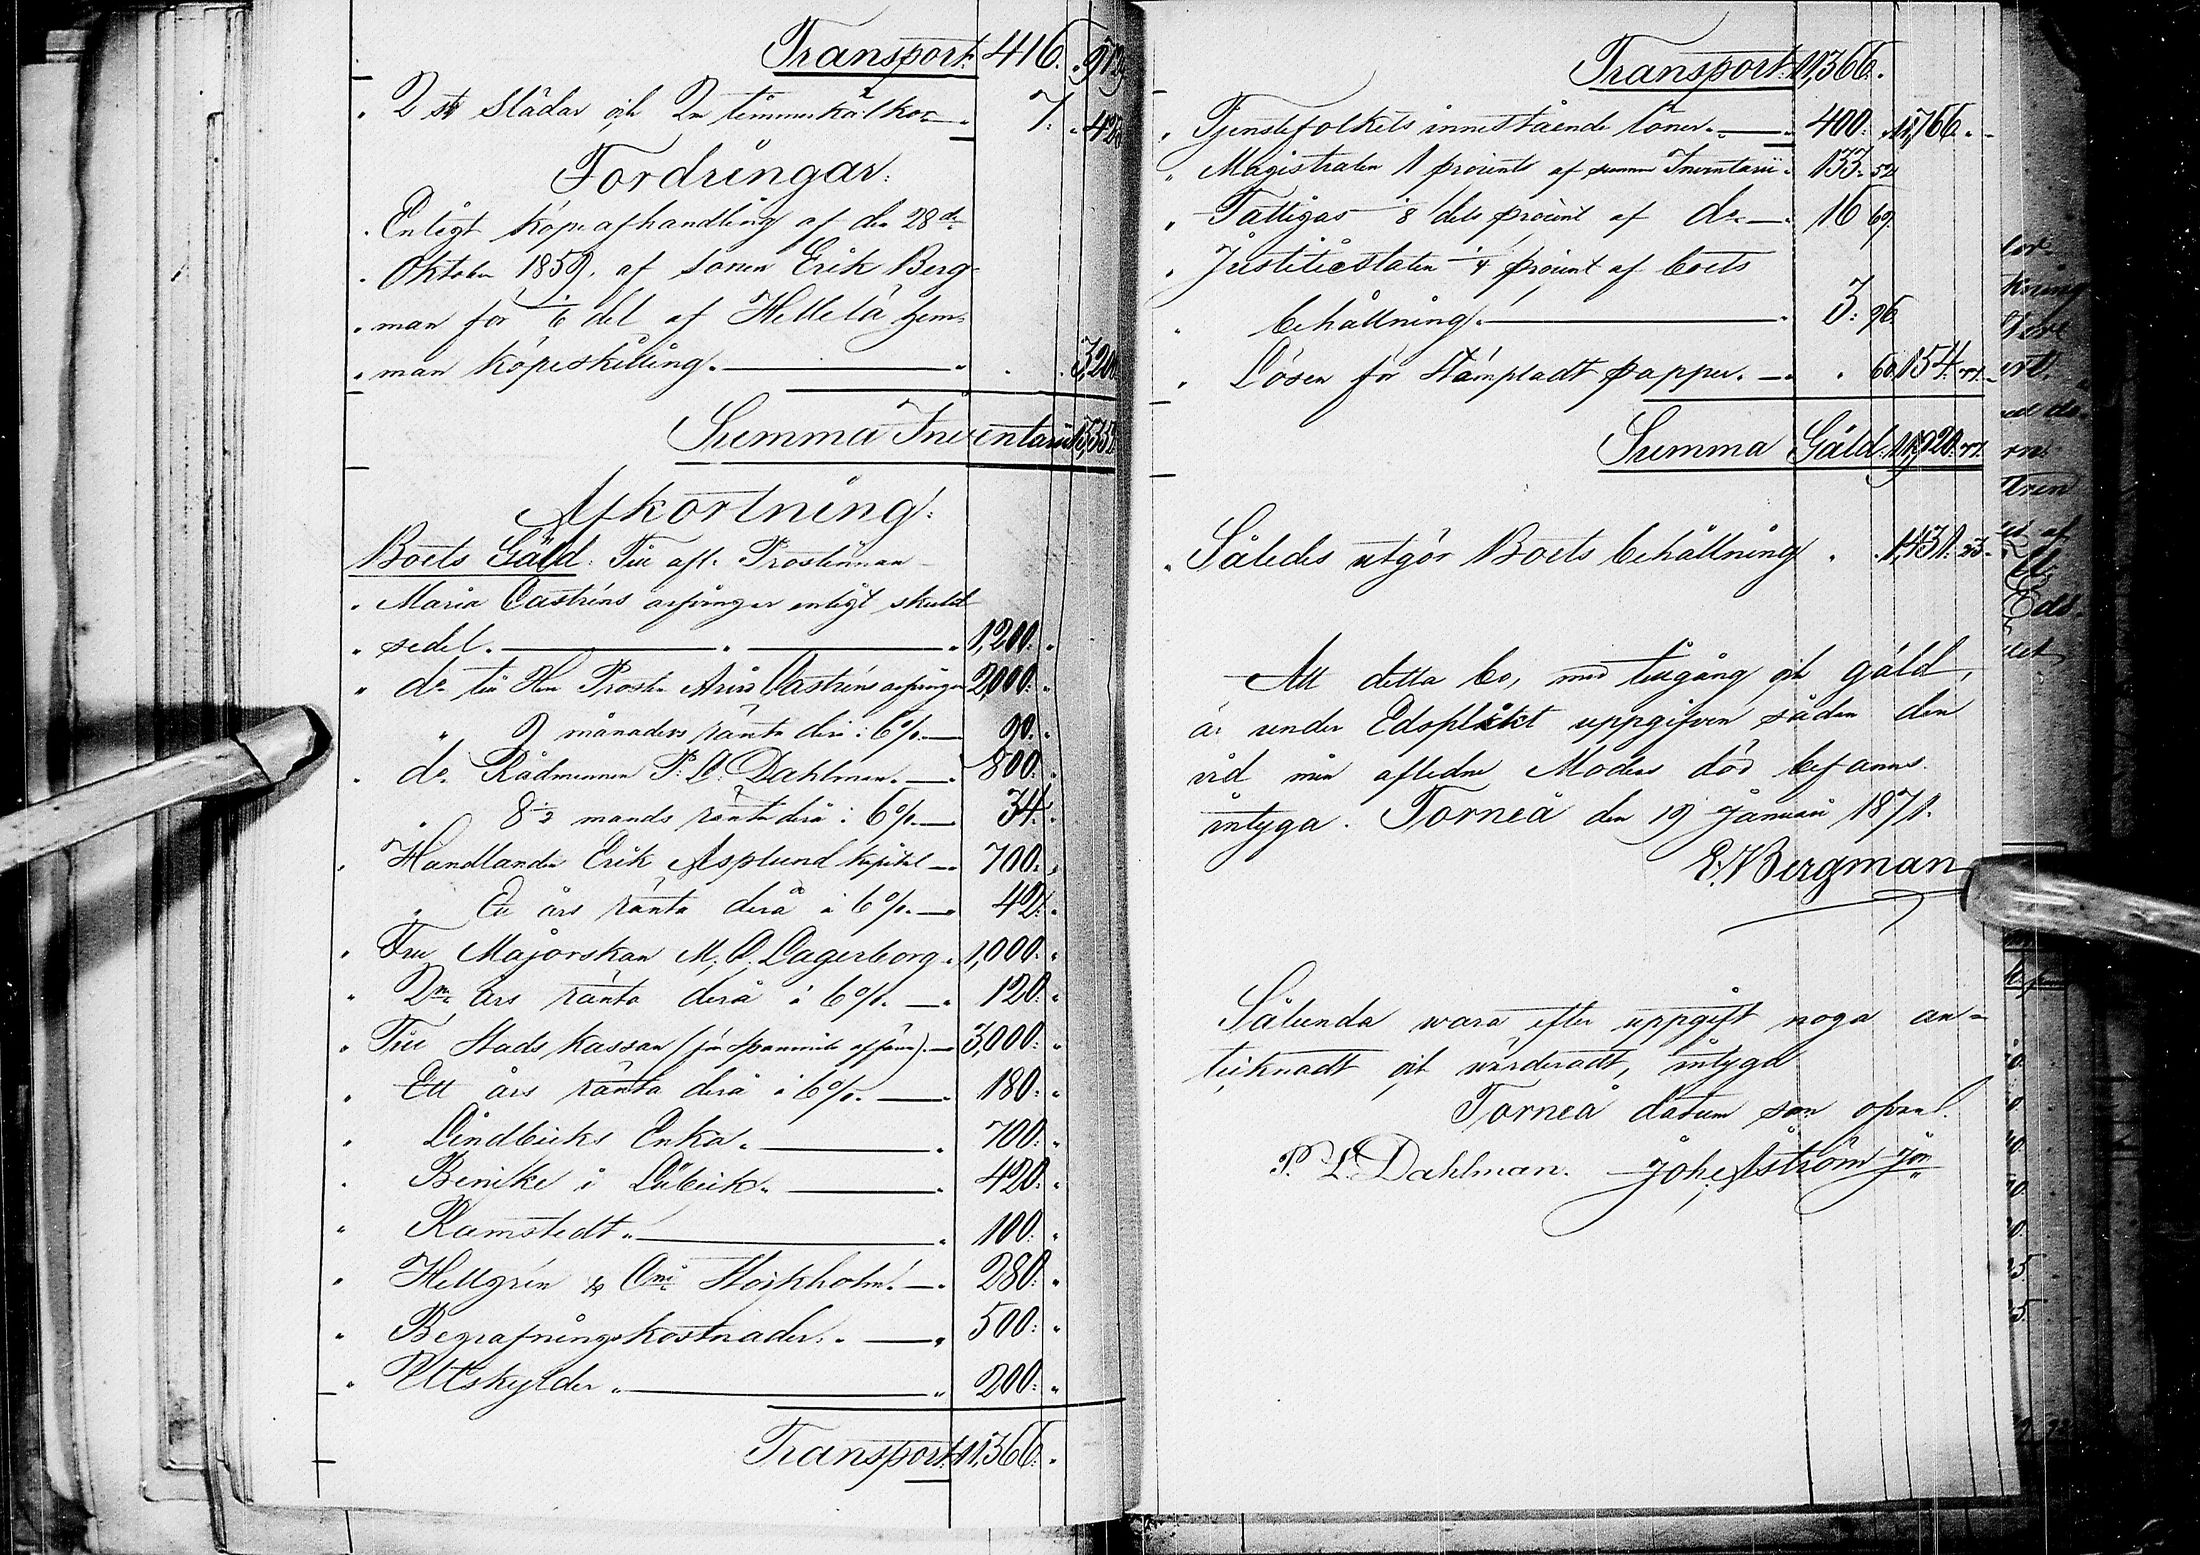 Transport: 416. 9,129
" 2 st Slädar och 2ne timmerkälkor — " 7: " 423
Fordringar:
" Enligt köpeafhandling af den 28de
" Oktober 1859, af sonen Erik Berg-
" man för 1/6 del af Hellelä hem-
" man köpeskilling. — " " " 3,200
Summa Inventarii
Afkortning:
Boets Gäld: Till afl. Prostinnan
" Maria Castréns arfvingar enligt skuld-
" sedel. — " — " 1,200: "
" do till Herr Prosten Castréns arfvingar 2,000: "
" 9 månaders ränta derå i 6%. — 90. "
" do Rådmannen P. L. Dahlman. — " 800: "
" 8 1/2 mands ränta derå i 6%. — 34: "
" Handlanden Erik Asplund kapital — " 700: "
" Ett års ränta derå à 6%. — " 42: "
" Fru Majorskan M. C. Lagerborg. " 1,000: "
" 2ne års ränta derå à 6%. — " 120: "
" Till Stads kassan (för Spanmåls affären). — 3,000: "
" Ett års ränta derå à 6%. — " 180: "
" Lindbäcks Enka. — " 700: "
" Benike i Lübeck. — " 420: "
" Ramstedt. — " 100: "
" Hellgrén & Cni Stockholm. — " 280: "
" Begrafningskostnader. " — " 500: "
" Utskylder " — " 200: "
Transport: 11,366: "
Transport: 11,366. "
" Tjenstefolkets innestående löner. — " 400: " 11,766. " -
" Magistraten 1 procents af summa Inventarii " 133. 52
" Fattigas 8 dels procent af do — " 16 69
" Justitiestaten 1/4 procent af boets
" behållning. — " 3: 96.
" Lösen för Stämpladt papper. — " " 60 154. 77. -
Summa Gäld: 11,920. 77.
" Således utgör Boets behållning " " 1,431. 23. -
Att detta bo, med tillgång och gäld,
är under Edsplikt uppgifven sådan den
vid min aflidne Moders död befanns
intyga. Torneå den 19 Januari 1871.
E. Bergman
Sålunda wara efter uppgift noga an-
tecknadt och värderadt, intyga
Torneå datum som ofvan.
P. L. Dahlman. Joh: Aström Jör